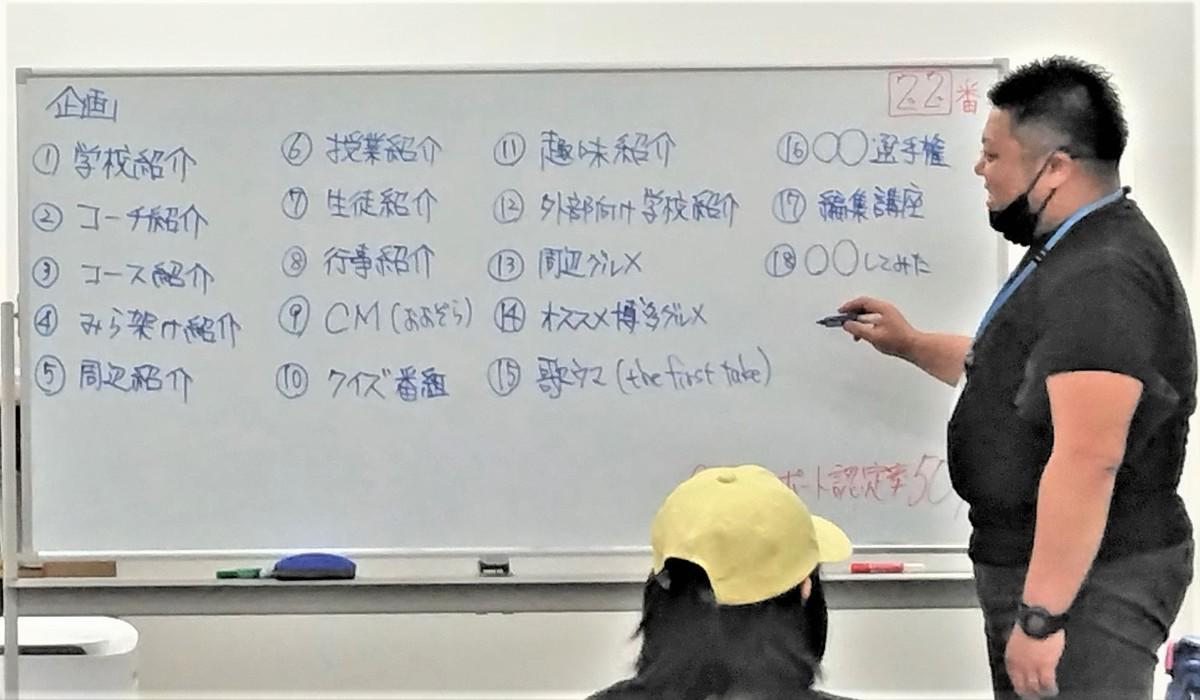 企画
① 学校紹介
② コーチ紹介
③ コース紹介
④ みら架け紹介
⑤ 周辺紹介
⑥ 授業紹介
⑦ 生徒紹介
⑧ 行事紹介
⑨ CM (おおぞら)
⑩ クイズ番組
⑪ 趣味紹介
⑫ 外部向け学校紹介
⑬ 周辺グルメ
⑭ オススメ博多グルメ
⑮ 歌ウマ (the first take)
⑯ 〇〇選手権
⑰ 編集講座
⑱ 〇〇してみた
22番
ポート認定率50